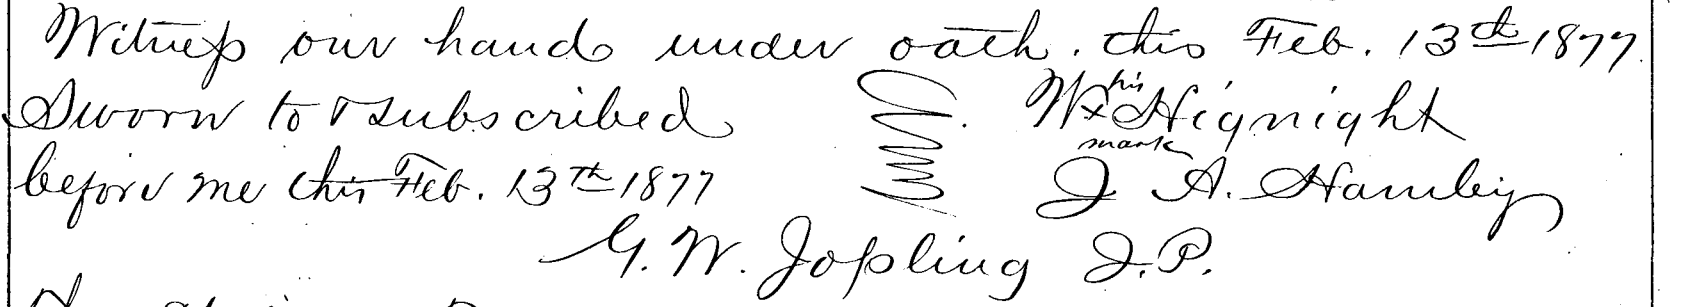 Witness our hands under oath. this Feb. 13th 1877.
Sworn to & subscribed
before me this Feb. 13th 1877
W. his x mark Hignight
J A. Hamby
G. W. Jopling J.P.